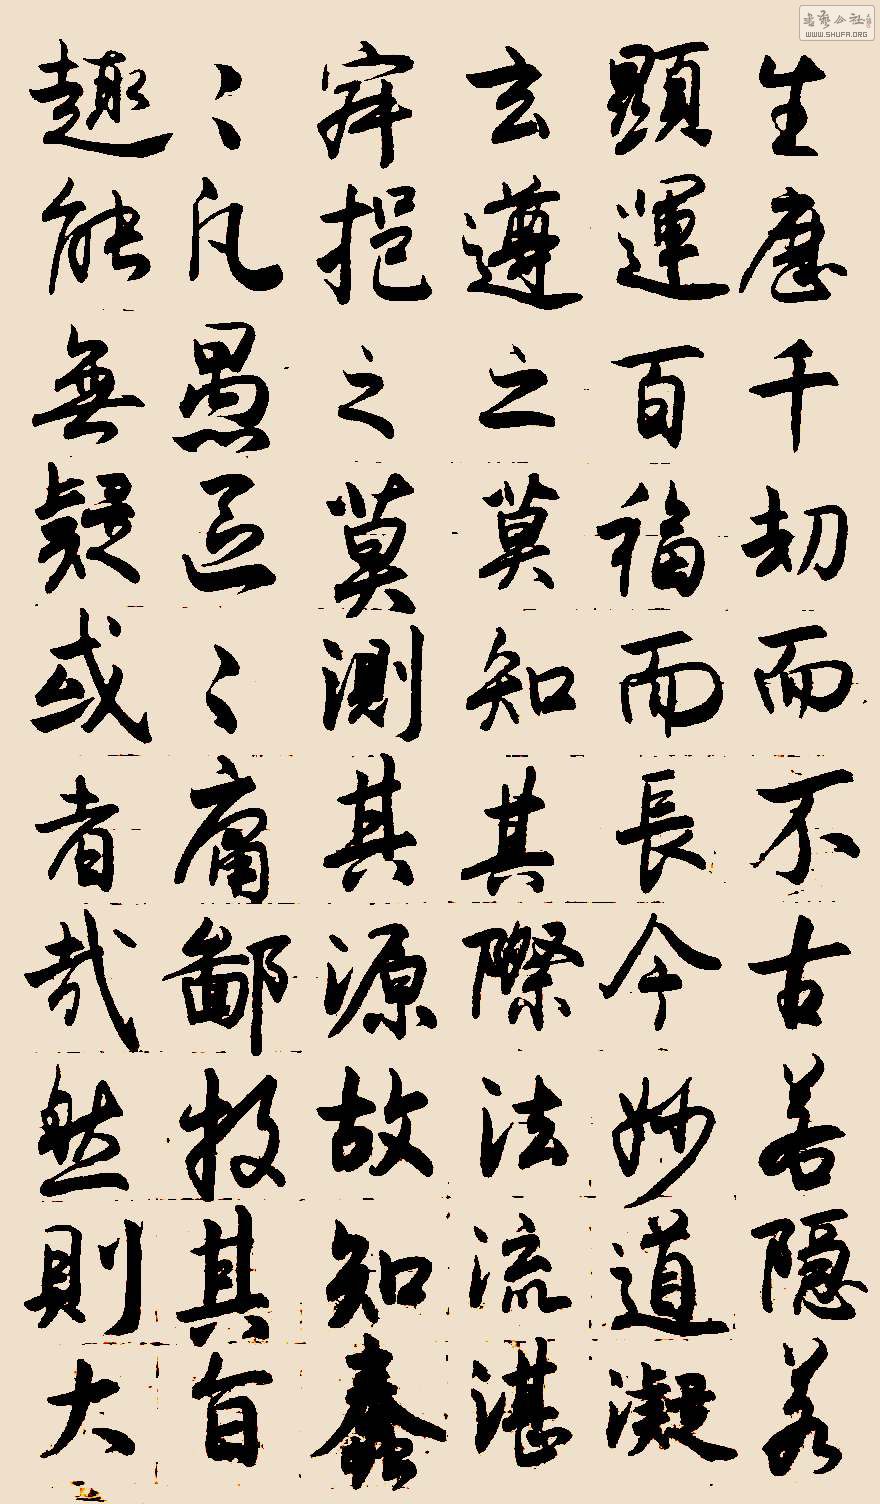 生歷千劫而不古若隱若
顯運百福而長今妙道凝
玄遵之莫知其際法流湛
寂挹之莫測其源故知蠢
〻凡愚區〻庸鄙投其旨
趣能無疑或者哉然則大
WWW.SHUFA.ORG